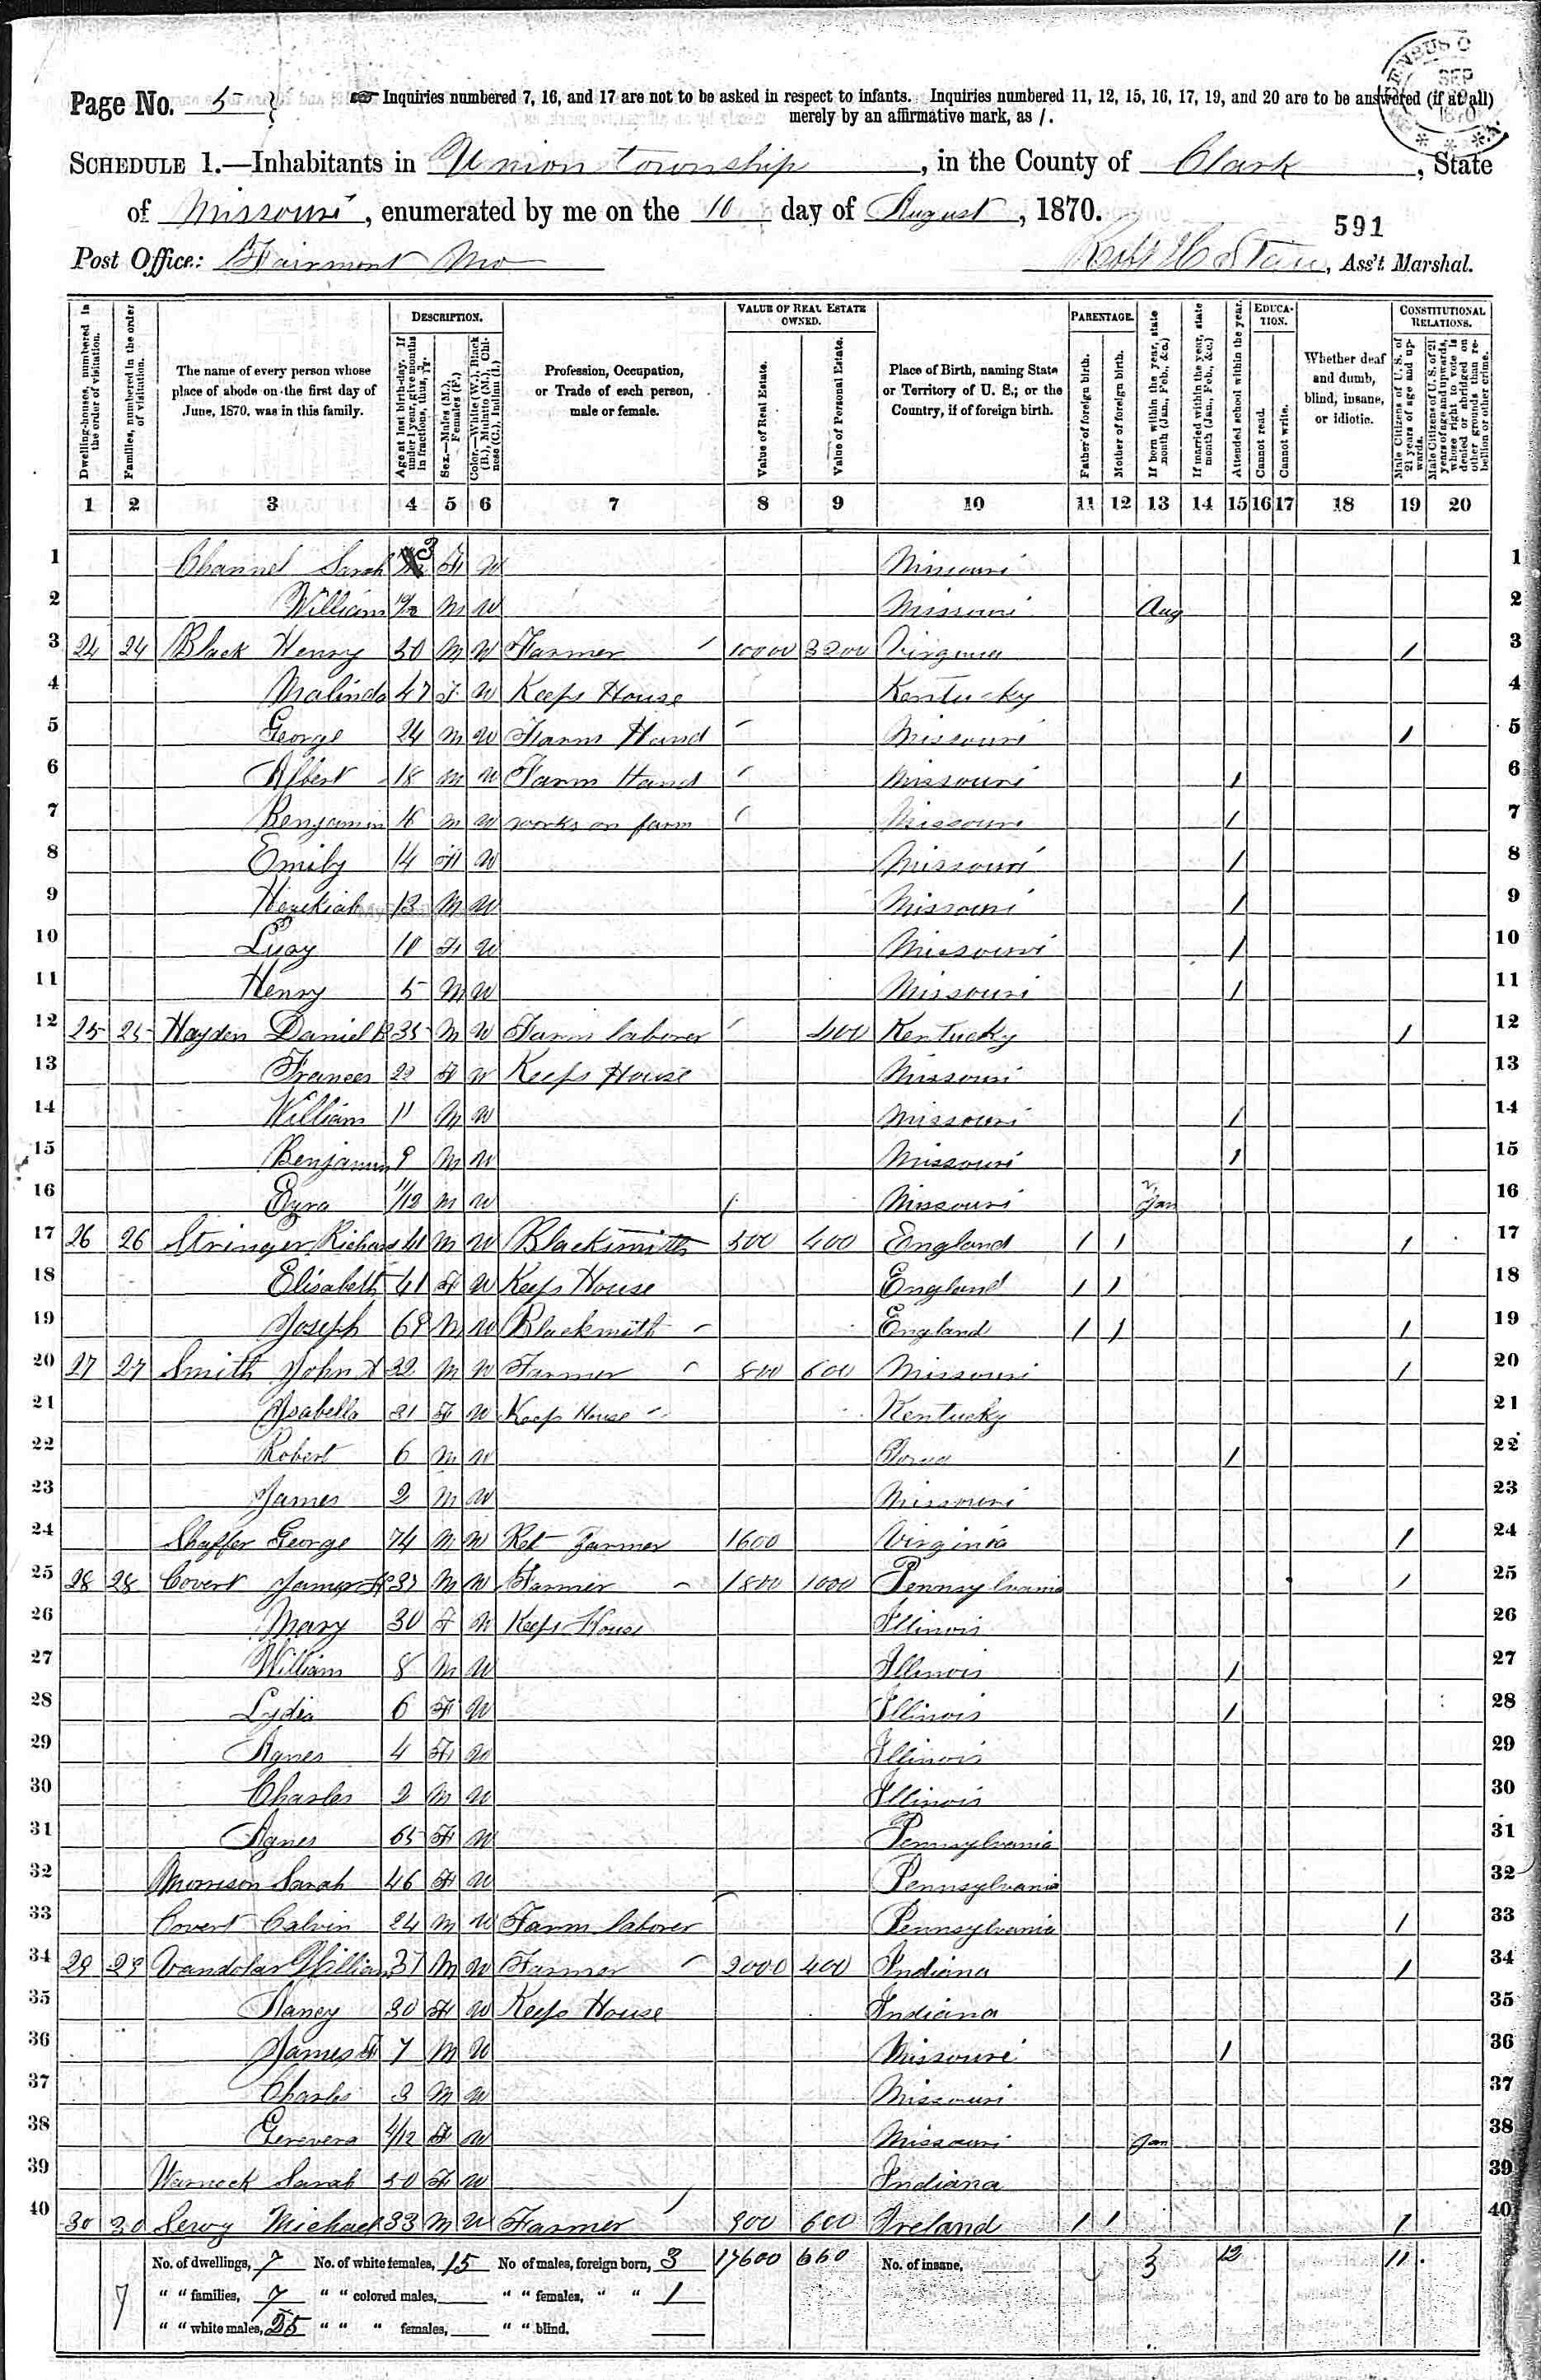 Page No. 5 } Inquiries numbered 7, 16, and 17 are not to be asked in respect to infants. Inquiries numbered 11, 12, 15, 16, 17, 19, and 20 are to be answered (if at all)
merely by an affirmative mark, as /.
CENSUS O SEP 1870
SCHEDULE 1.—Inhabitants in Union township, in the County of Clark, State
of Missouri, enumerated by me on the 10 day of August, 1870.
591
Post Office: Fairmont Mo Robt H Ass't Marshal.
Dwelling-houses, numbered in the order of visitation.
Families, numbered in the order of visitation.
The name of every person whose place of abode on the first day of June, 1870, was in this family.
DESCRIPTION.
Age at last birth-day. If under 1 year, give months in fractions, thus,
Sex.—Males (M.), Females (F.)
Color.—White (W.), Black (B.), Mulatto (M.), Chinese (C.), Indian (I.)
Profession, Occupation, or Trade of each person, male or female.
VALUE OF REAL ESTATE OWNED.
Value of Real Estate.
Value of Personal Estate.
Place of Birth, naming State or Territory of U. S.; or the Country, if of foreign birth.
PARENTAGE.
Father of foreign birth.
Mother of foreign birth.
If born within the year, state month (Jan., Feb., &c.)
If married within the year, state month (Jan., Feb., &c.)
Attended school within the year.
EDUCATION.
Cannot read.
Cannot write.
Whether deaf and dumb, blind, insane, or idiotic.
CONSTITUTIONAL RELATIONS.
Male Citizens of U. S. of 21 years of age and upwards.
Male Citizens of U. S. of 21 years of age and upwards, whose right to vote is denied or abridged on other grounds than rebellion or other crime.
1 2 3 4 5 6 7 8 9 10 11 12 13 14 15 16 17 18 19 20
1 Channel Sarah 3 F W Missouri 1
2 William 10/12 M W Missouri Aug 2
3 24 24 Black Henry 50 M W Farmer / 10000 3200 Virginia / 3
4 Malinda 47 F W Keeps House Kentucky 4
5 George 24 M W Farm Hand Missouri / 5
6 Albert 18 M W Farm Hand Missouri / 6
7 Benjamin 16 M W works on farm Missouri / 7
8 Emily 14 F W Missouri / 8
9 Hezekiah 13 M W Missouri / 9
10 Lucy 10 F W Missouri / 10
11 Henry 5 M W Missouri / 11
12 25 25 Hayden Daniel B 35 M W Farm laborer 400 Kentucky / 12
13 Frances F W Keeps House Missouri 13
14 William 11 M W Missouri / 14
15 Benjamin 9 M W Missouri / 15
16 Ezra 11/12 M W Missouri Jan 16
17 26 26 Stringer Richard 41 M W Blacksmith 500 400 England / / / 17
18 Elisabeth 41 F W Keeps House England / / 18
19 Joseph 69 M W Blacksmith England / / / 19
20 27 27 Smith John 32 M W Farmer 800 600 Missouri / 20
21 Isabella 31 F W Keeps House Kentucky 21
22 Robert 6 M W Iowa / 22
23 James 2 M W Missouri 23
24 Shaffer George 74 M W Ret Farmer 1600 Virginia / 24
25 28 28 Covert James H 37 M W Farmer 1800 1000 Pennsylvania / 25
26 Mary 30 F W Keeps House Illinois 26
27 William 8 M W Illinois / 27
28 Lydia 6 F W Illinois / 28
29 Agnes 4 F W Illinois 29
30 Charles 2 M W Illinois 30
31 Agnes 65 F W Pennsylvania 31
32 Morrison Sarah 46 F W Pennsylvania 32
33 Covert Calvin 24 M W Farm laborer Pennsylvania / 33
34 29 29 Vandolar William 37 M W Farmer 2000 400 Indiana / 34
35 Nancy 30 F W Keeps House Indiana 35
36 James F 7 M W Missouri / 36
37 Charles 3 M W Missouri 37
38 Genevera 4/12 F W Missouri Jan 38
39 Warnock Sarah 50 F W Indiana 39
40 30 30 Michael 33 M W Farmer 900 600 Ireland / / / 40
No. of dwellings, 7 No. of white females, 15 No of males, foreign born, 3 17600 660 No. of insane, 3 12 11
7 " " families, 7 " " colored males, " " females, " " 1
" " white males, 25 " " " females, " " blind,